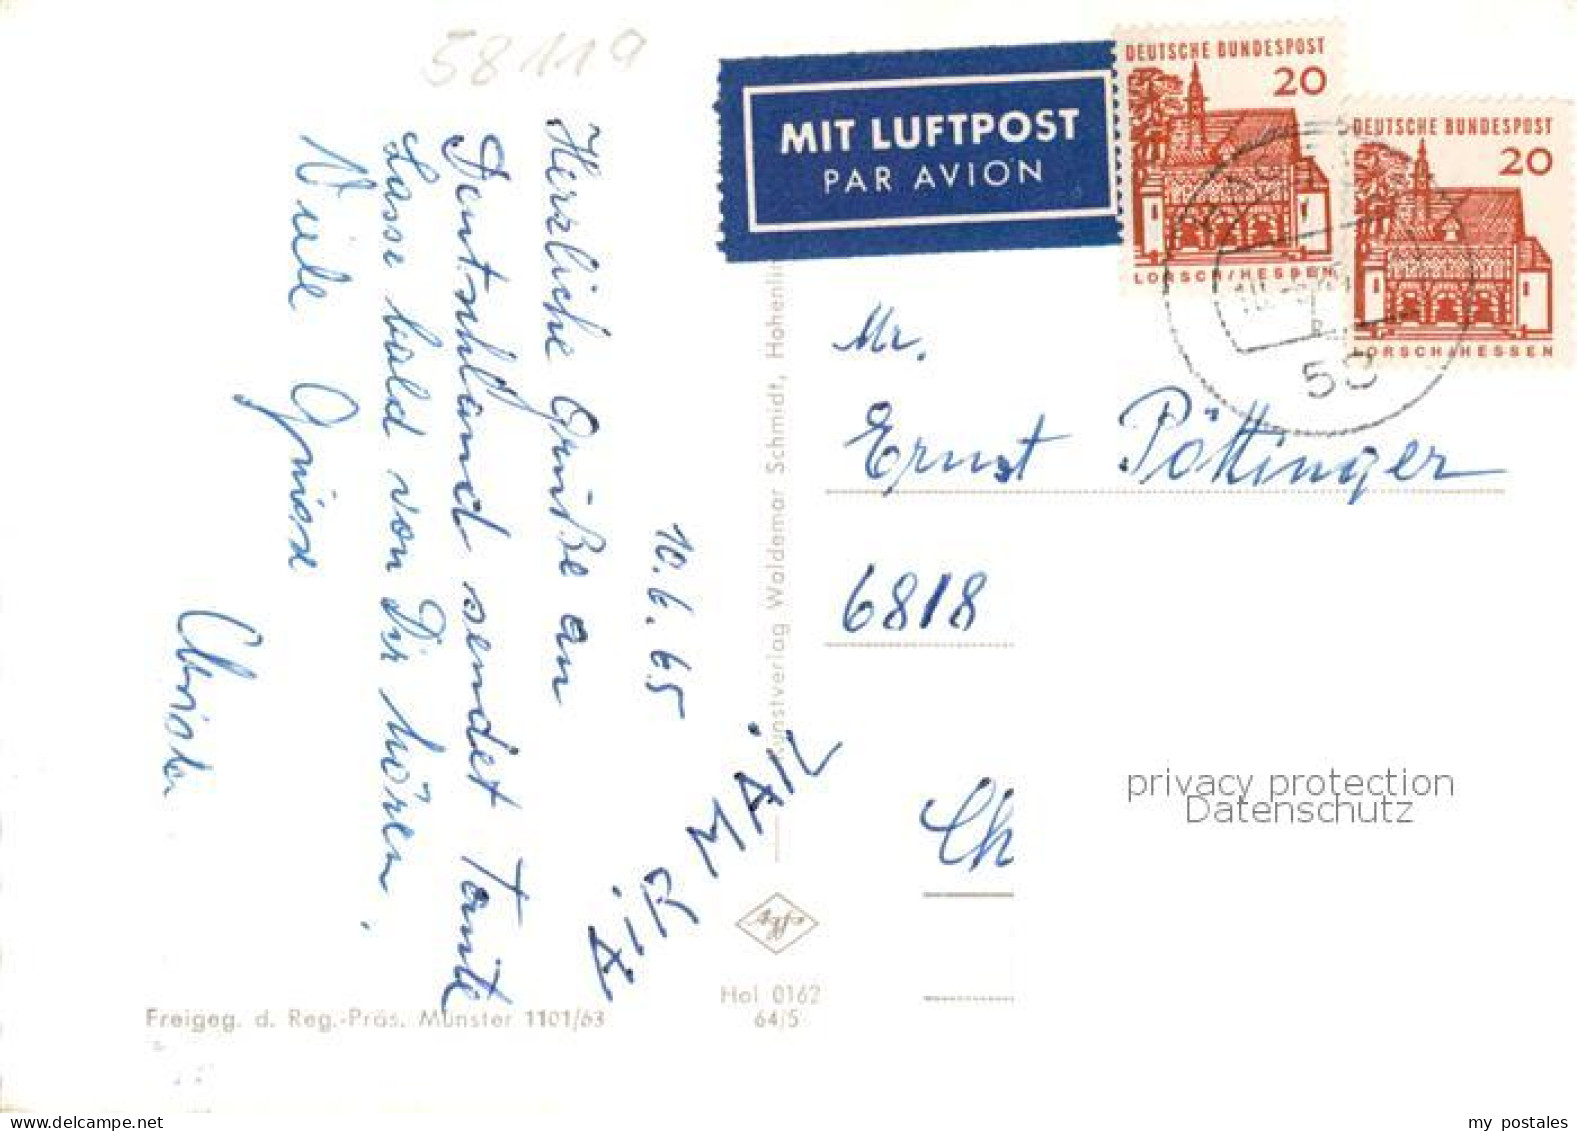 58119
10.6.65
Herzliche Grüße an
Deutschland sendet Tante
Lasse bald von Dir hören.
Viele Grüsse
AIR MAIL
MIT LUFTPOST
PAR AVION
DEUTSCHE BUNDESPOST
20
LORSCH/HESSEN
DEUTSCHE BUNDESPOST
20
LORSCH/HESSEN
Mr.
Ernst Pöttinger
6818
Ch
privacy protection
Datenschutz
Kunstverlag Waldemar Schmidt, Hohenlim
Hol 0162
64/5
Freigeg. d. Reg.-Präs. Münster 1101/63
my postales